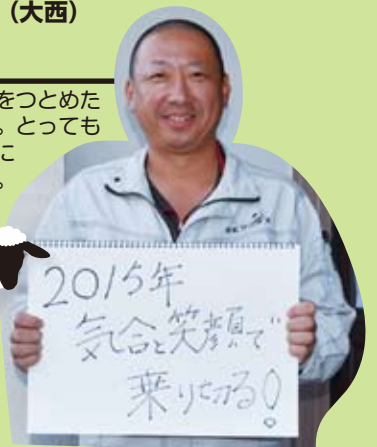 （大西）
をつとめた
。とっても
に
。
2015年
気合と笑顔で
乗り切る!